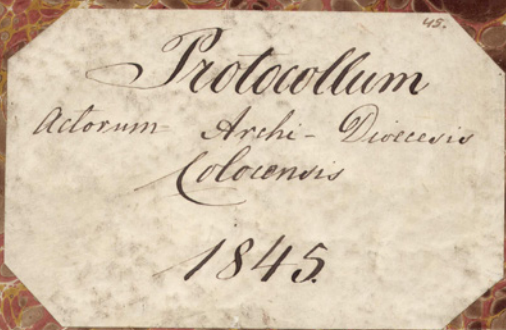 45.
Protocollum
Actorum Archi- Dioecesis
Colocensis
1845.